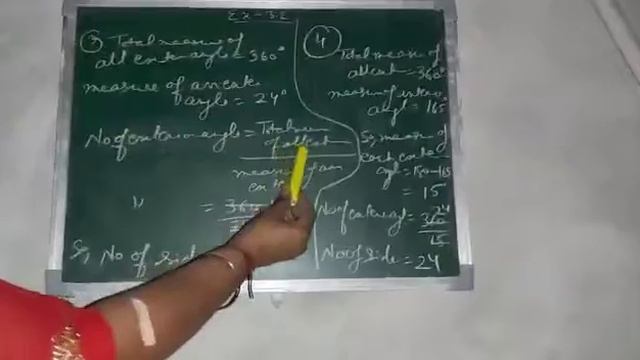 Ex - 3.2
③ Total measure of
all exter angle = 360°
measure of an exter
angle = 24°
No of exterior angle = Total meas
of all ext
measure of an
ext
" = 360
So, No of Sid
④
Total measure of
all ext = 360°
measure of interior
angle = 165°
So, measure of
each exterior
agl = 180 - 165
= 15
No of exter angl = 360 24
15
No of Side = 24